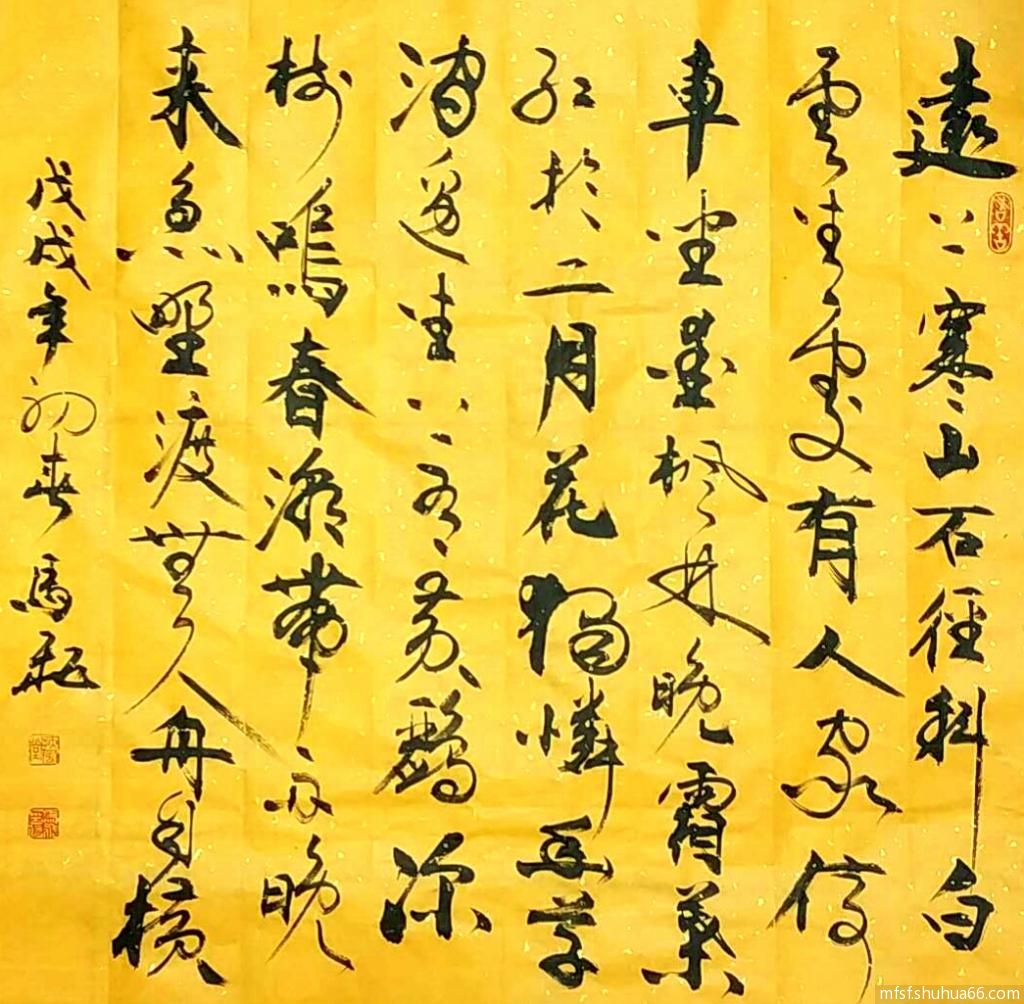 遠上寒山石徑斜白
雲生處有人家停
車坐愛楓林晚霜葉
紅於二月花獨憐幽草
澗邊生上有黃鸝深
樹鳴春潮帶雨晚
来急野渡無人舟自橫
戊戌年初春馬
mfsf.shuhua66.com